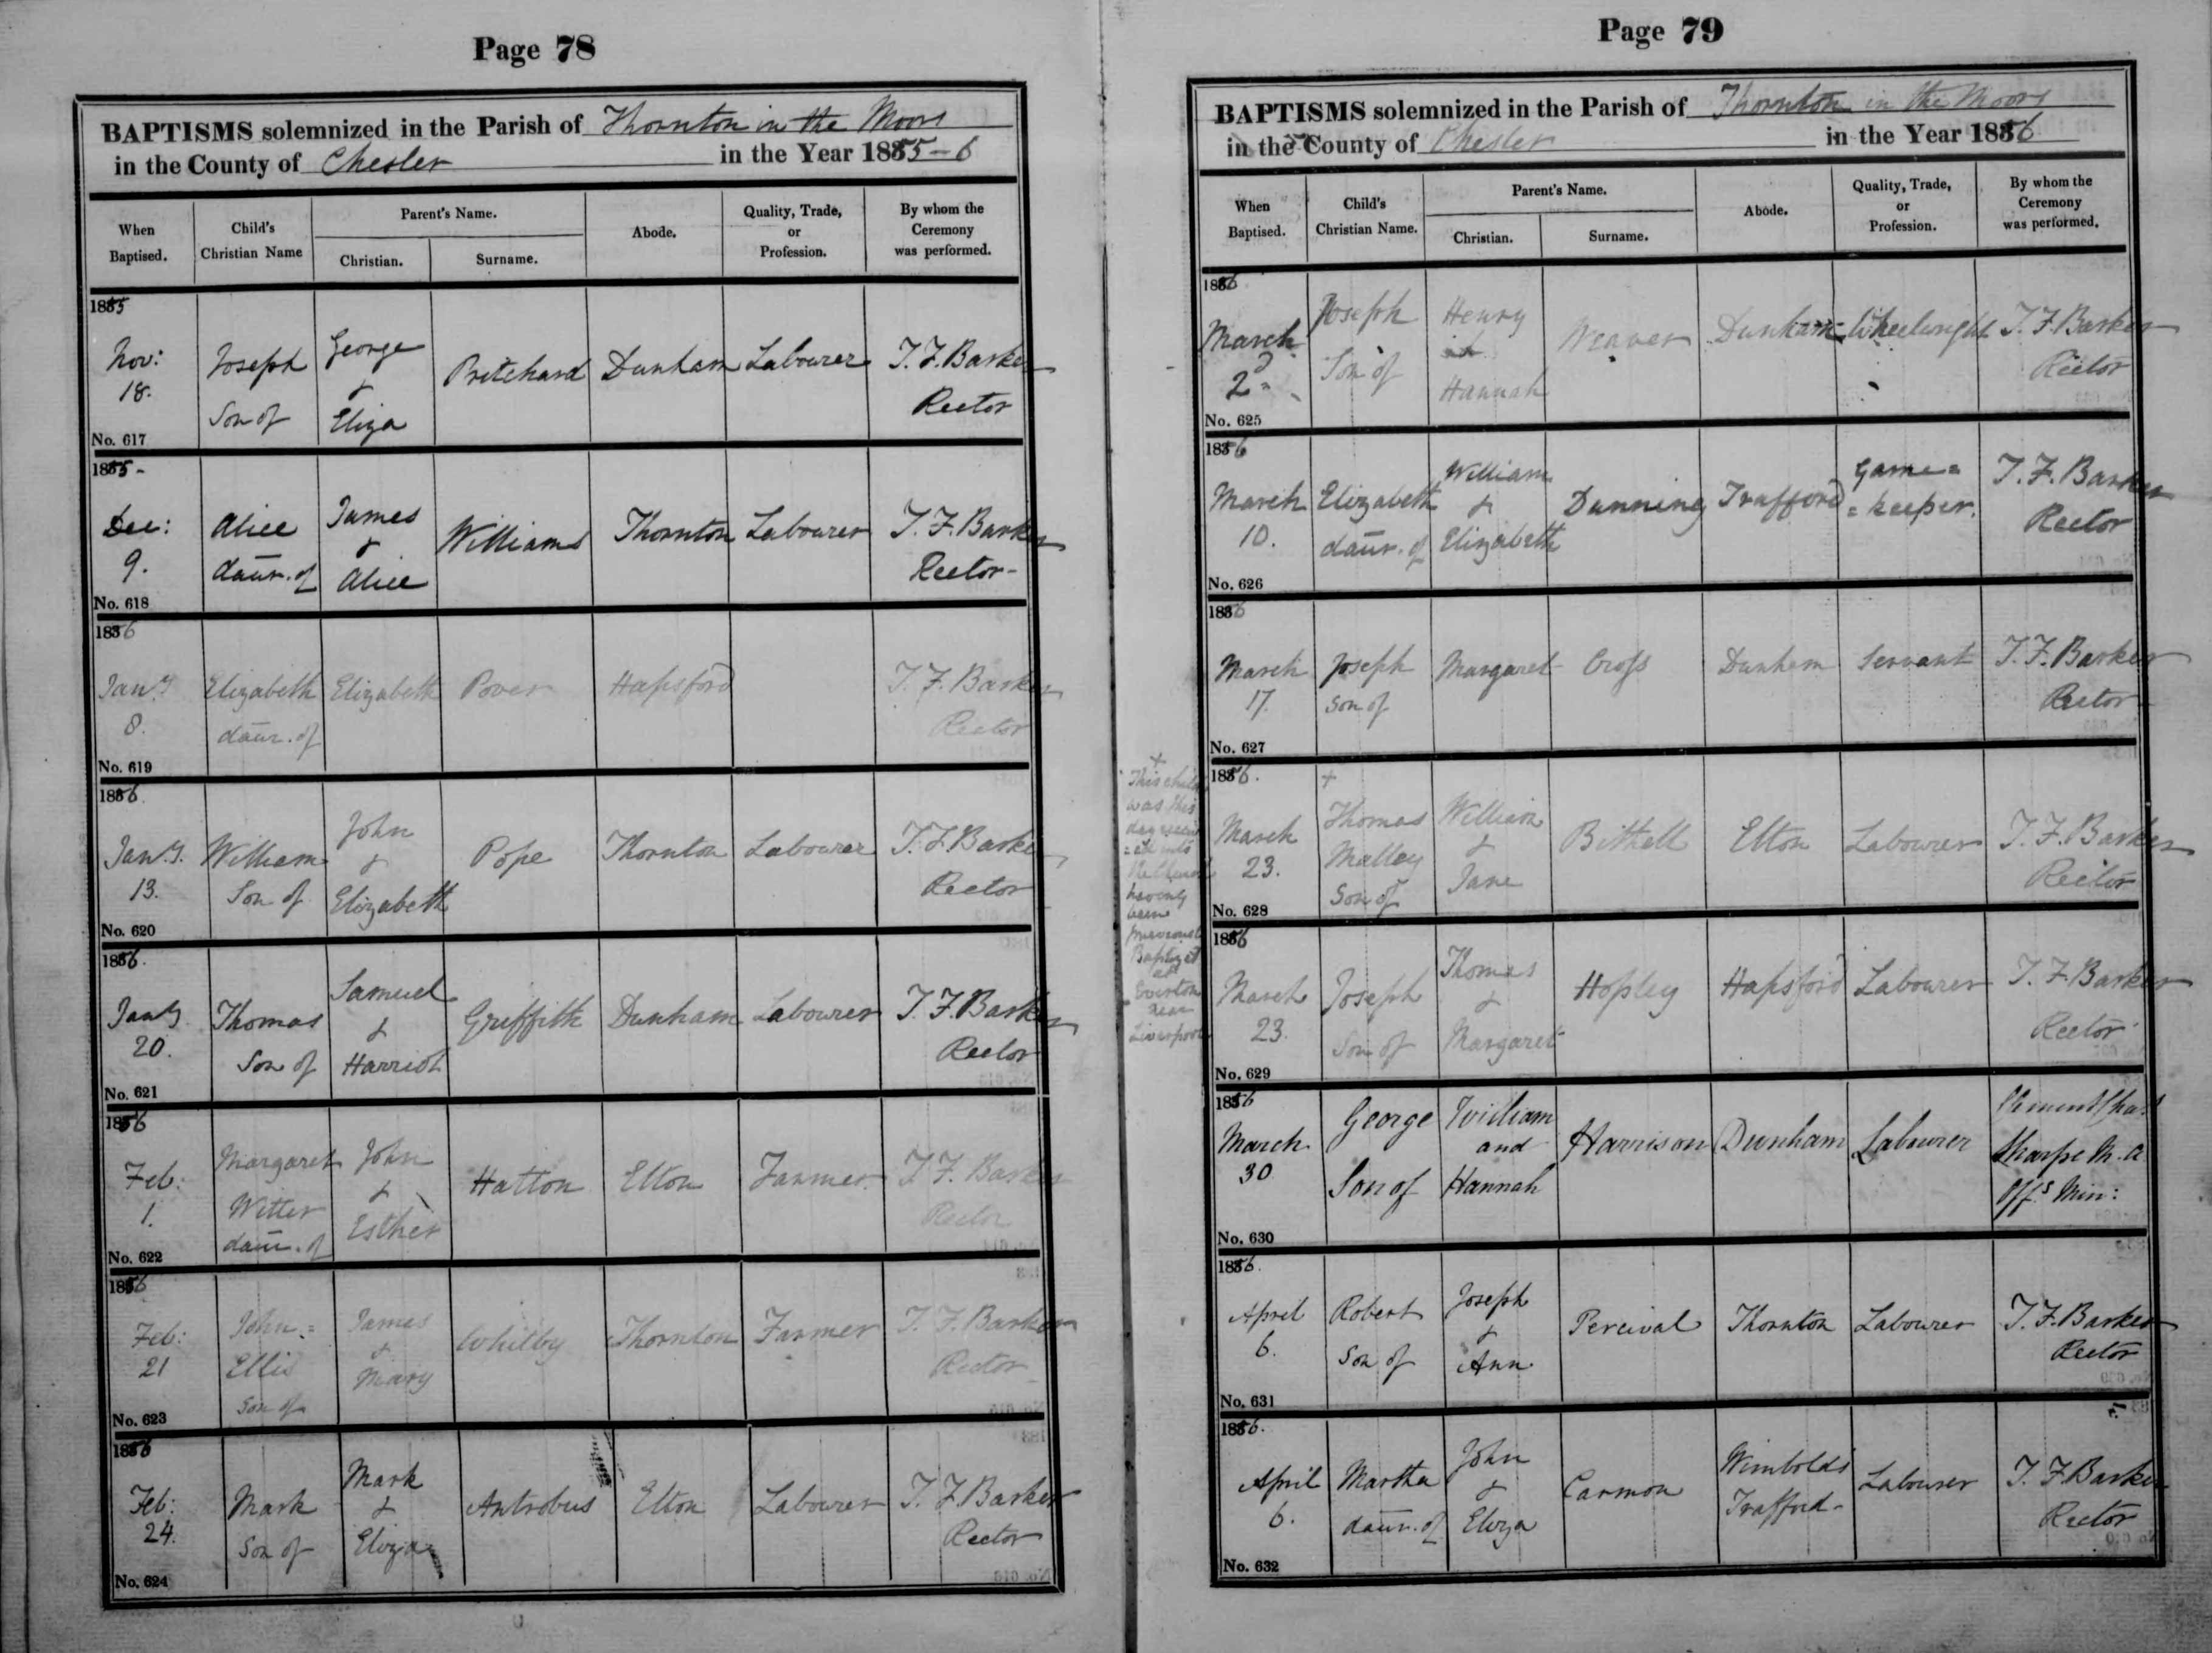 Page 78
BAPTISMS solemnized in the Parish of Thornton in the Moors
in the County of Chester in the Year 1855-6
When Baptised. Child's Christian Name Parent's Name. Christian. Surname. Abode. Quality, Trade, or Profession. By whom the Ceremony was performed.
1855
Nov: 18. Joseph Son of George & Eliza Pritchard Dunham Labourer T. F. Barker Rector
No. 617
1855-
Dec: 9. Alice daur. of James & Alice Williams Thornton Labourer T. F. Barker Rector-
No. 618
1856
Jany 8. Elizabeth daur. of Elizabeth Pover Hapsford T. F. Barker Rector
No. 619
1856.
Jany. 13. William Son of John & Elizabeth Pope Thornton Labourer T. F. Barker Rector
No. 620
1856.
Jany 20. Thomas Son of Samuel & Harriot Griffith Dunham Labourer T. F. Barker Rector
No. 621
1856
Feb: 1. Margaret Witter daur. of John & Esther Hatton Elton Farmer T. F. Barker Rector
No. 622
1856
Feb: 21 John= Ellis Son of James & Mary Whitby Thornton Farmer T. F. Barker Rector
No. 623
1856
Feb: 24. Mark Son of Mark & Eliza Antrobus Elton Labourer T. F. Barker Rector
No. 624
Page 79
BAPTISMS solemnized in the Parish of Thornton in the Moors
in the County of Chester in the Year 1856
When Baptised. Child's Christian Name. Parent's Name. Christian. Surname. Abode. Quality, Trade, or Profession. By whom the Ceremony was performed.
1856
March 2d Joseph Son of Henry & Hannah Weaver Dunham Wheelwright T. F. Barker Rector
No. 625
1856
March 10. Elizabeth daur. of William & Elizabeth Dunning Trafford Game= =keeper. T. F. Barker Rector
No. 626
1856
March 17. Joseph Son of Margaret Cross Dunham Servant T. F. Barker Rector
No. 627
+
This child
was this
day receiv
=ed into
the Church
having
been
previously
Baptized
at
Everton
near
Liverpool
1856.
+
March 23. Thomas Malley Son of William & Jane Bithell Elton Labourer T. F. Barker Rector
No. 628
1856
March 23. Joseph Son of Thomas & Margaret Hopley Hapsford Labourer T. F. Barker Rector
No. 629
1856
March 30 George Son of William and Hannah Harrison Dunham Labourer Clement Chas Sharpe M. A Offs Min:
No. 630
1856.
April 6. Robert Son of Joseph & Ann Percival Thornton Labourer T. F. Barker Rector
No. 631
1856.
April 6. Martha daur. of John & Eliza Carmon Wimbolds Trafford- Labourer T. F. Barker Rector
No. 632